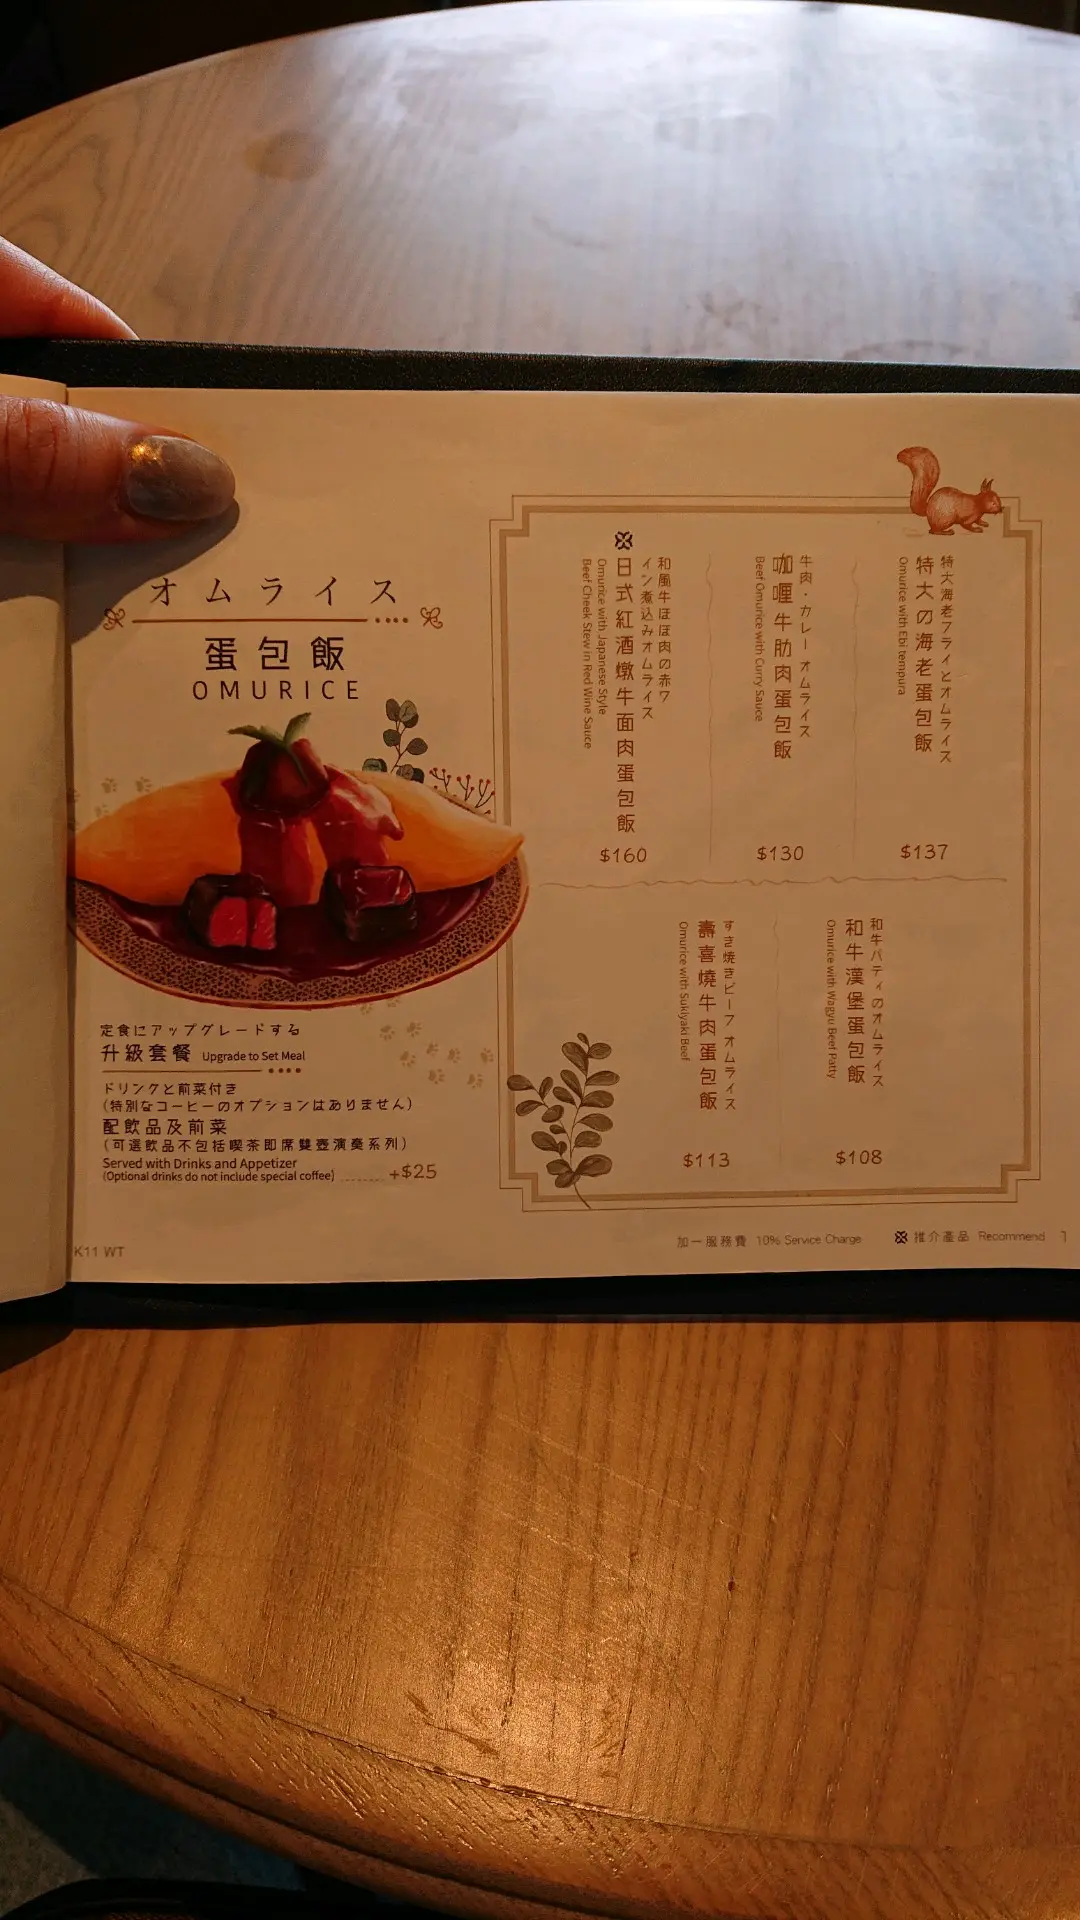 オムライス
蛋包飯
OMURICE
定食にアップグレードする
升級套餐 Upgrade to Set Meal
ドリンクと前菜付き
(特別なコーヒーのオプションはありません)
配飲品及前菜
(可選飲品不包括喫茶即席雙壺演奏系列)
Served with Drinks and Appetizer
(Optional drinks do not include special coffee) ........ +$25
K11 WT
特大海老フライとオムライス
特大の海老蛋包飯
Omurice with Ebi tempura
$137
牛肉・カレー オムライス
咖喱牛肋肉蛋包飯
Beef Omurice with Curry Sauce
$130
和風牛ほほ肉の赤ワ
イン煮込みオムライス
日式紅酒燉牛面肉蛋包飯
Omurice with Japanese Style
Beef Cheek Stew in Red Wine Sauce
$160
和牛パティのオムライス
和牛漢堡蛋包飯
Omurice with Wagyu Beef Patty
$108
すき焼きビーフ オムライス
壽喜燒牛肉蛋包飯
Omurice with Sukiyaki Beef
$113
加一服務費 10% Service Charge 推介產品 Recommend 1